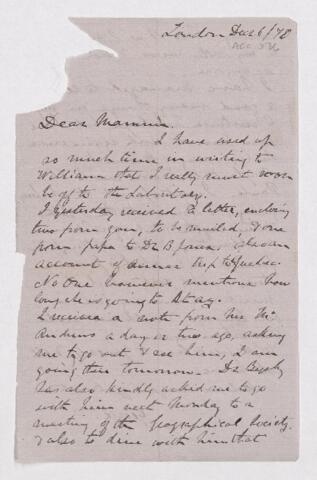 London Dec 6/78
Dear Mamma.
I have used up
so much time in writing to
William that I really must soon
be off to the Laboratory.
I yesterday received a letter, enclosing
two from you, to be mailed, & one
from papa to Dr B Jones. also an
account of trip to Quebec.
No One however mentions how
long he is going to stay.
I received a note from Mr Mc
Andrews a day or two ago, asking
me to go out & see him, I am
going there tomorrow. Dr
has also kindly asked me to go
with him next Monday to a
meeting of the Geographical Society.
& also to dine with him that